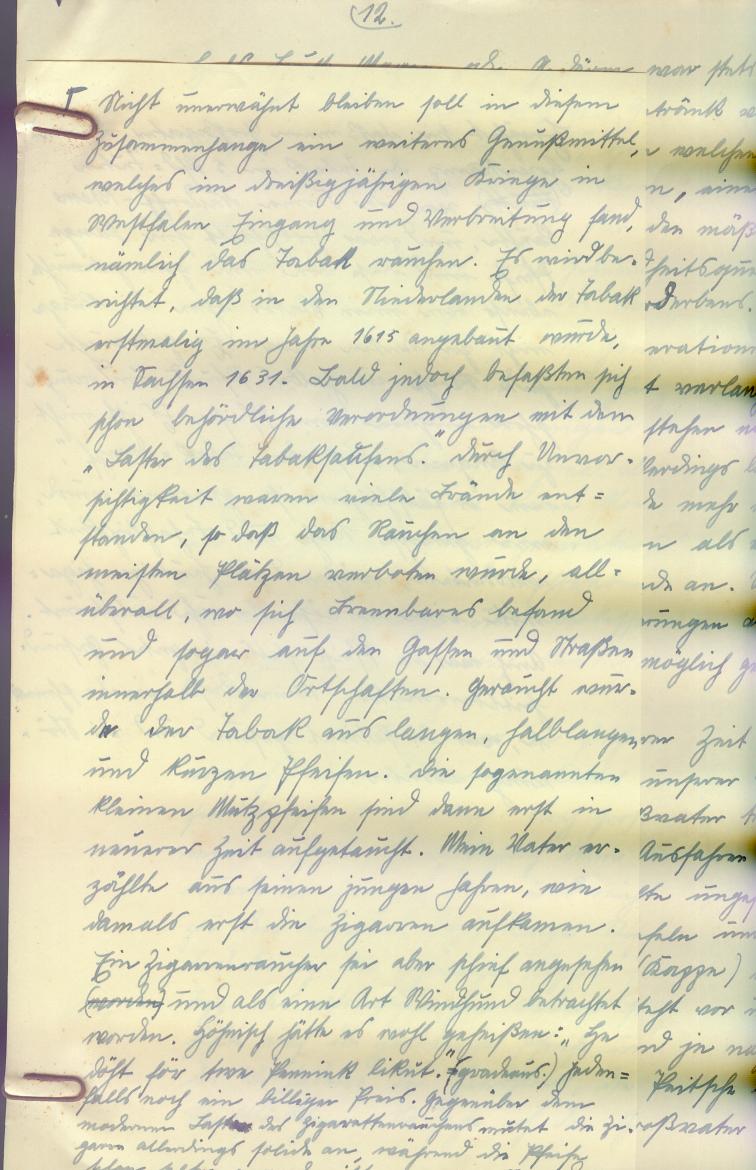 12.
Nicht unerwähnt bleiben soll in diesem
Zusammenhange ein weiteres Genußmittel,
welches im dreißigjährigen Kriege in
Westfalen Eingang und Verbreitung fand,
nämlich das Tabak rauchen. Es wird be-
richtet, daß in den Niederlanden der Tabak
erstmalig im Jahre 1615 angebaut wurde,
in Sachsen 1631. Bald jedoch befaßten sich
schon behördliche Verordnungen mit dem
„Laster des Tabaksaufens." Durch Unvor-
sichtigkeit waren viele Brände ent=
standen, so daß das Rauchen an den
meisten Plätzen verboten wurde, all-
überall, wo sich Brennbares befand
und sogar auf den Gassen und Straßen
innerhalb der Ortschaften. Geraucht wur-
de der Tabak aus langen, halblangen
und kurzen Pfeifen. Die sogenannten
kleinen Mutzpfeifen sind dann erst in
neuerer Zeit aufgetaucht. Mein Vater er-
zählte aus seinen jungen Jahren, wie
damals erst die Zigarren aufkamen.
Ein Zigarrenraucher sei aber schief angesehen
(worden) und als eine Art Windhund betrachtet
worden. Höhnisch hätte es wohl geheißen: „He
döht för twe Pennink likut." (gradeaus.) Jeden=
falls noch ein billiger Preis. Gegenüber dem
modernen Laster des Zigarettenrauchens mutet die Zi-
garre allerdings solide an, während die Pfeife
war stets
welchen
, eine
den mäß
derbens.
verlan
stehen
mehr
als
an.
möglich
Zeit
unserer
Ausfahren
(Kappe)
vor
je
Peitsche